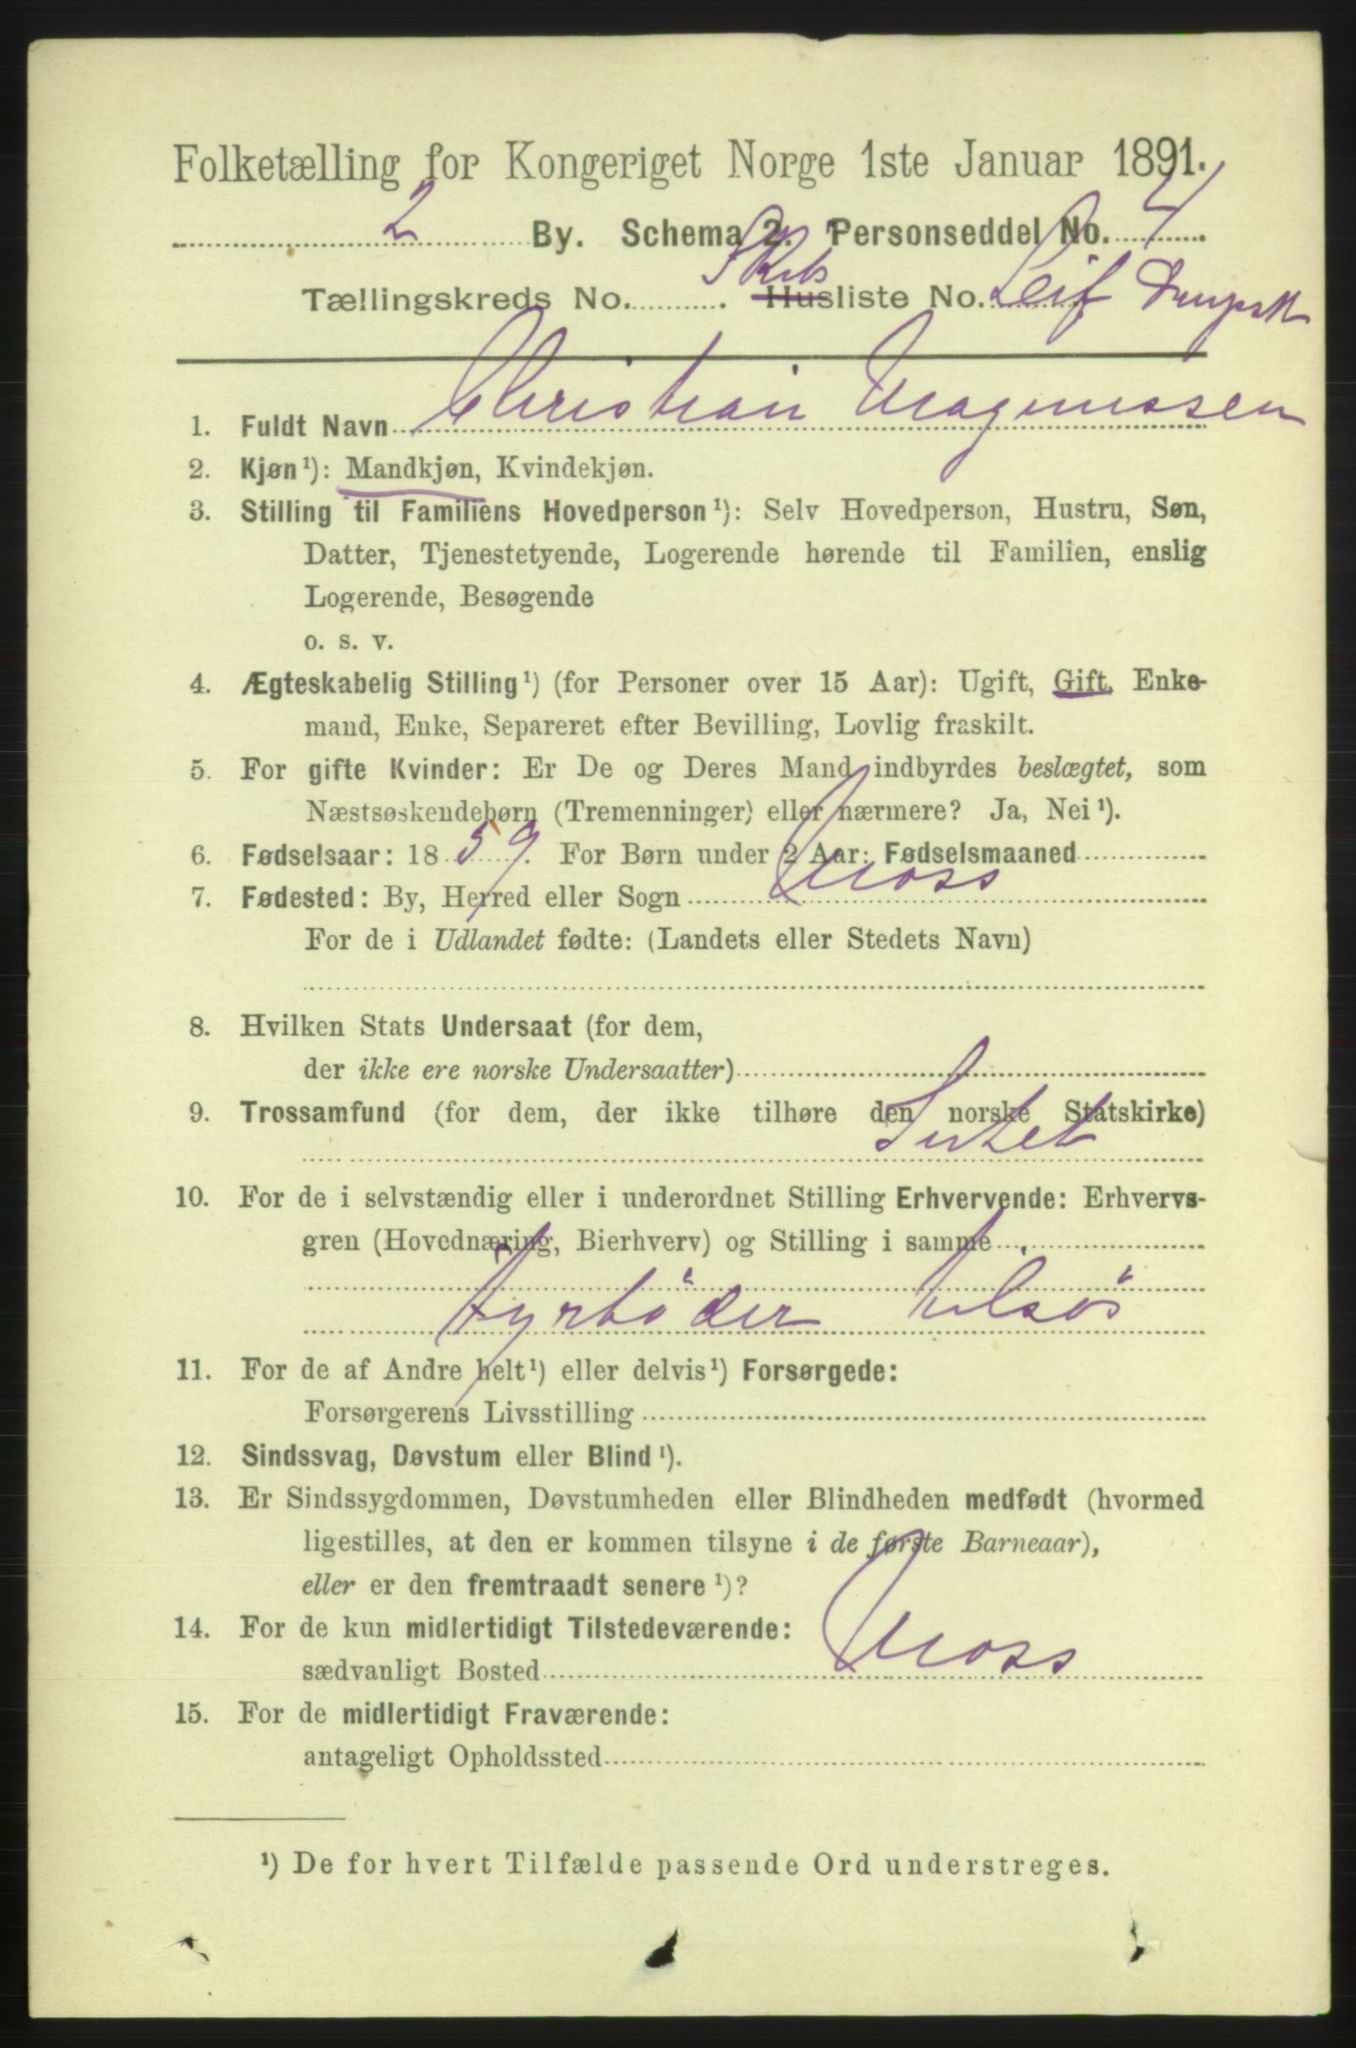 Folketælling for Kongeriget Norge 1ste Januar 1891.
2 By. Schema 2. Personseddel No. 4
Tællingskreds No. . Skibs Husliste No. Leif
1. Fuldt Navn Christian Magnussen
2. Kjøn¹): Mandkjøn, Kvindekjøn.
3. Stilling til Familiens Hovedperson¹): Selv Hovedperson, Hustru, Søn,
Datter, Tjenestetyende, Logerende hørende til Familien, enslig
Logerende, Besøgende
o. s. v.
4. Ægteskabelig Stilling¹) (for Personer over 15 Aar): Ugift, Gift, Enke-
mand, Enke, Separeret efter Bevilling, Lovlig fraskilt.
5. For gifte Kvinder: Er De og Deres Mand indbyrdes beslægtet, som
Næstsøskendebørn (Tremenninger) eller nærmere? Ja, Nei¹).
6. Fødselsaar: 1859. For Børn under 2 Aar: Fødselsmaaned
7. Fødested: By, Herred eller Sogn Moss
For de i Udlandet fødte: (Landets eller Stedets Navn)
8. Hvilken Stats Undersaat (for dem,
der ikke ere norske Undersaatter)
9. Trossamfund (for dem, der ikke tilhøre den norske Statskirke)
Intet
10. For de i selvstændig eller i underordnet Stilling Erhvervende: Erhvervs-
gren (Hovednæring, Bierhverv) og Stilling i samme
Fyrböder tilsös
11. For de af Andre helt¹) eller delvis¹) Forsørgede:
Forsørgerens Livsstilling
12. Sindssvag, Døvstum eller Blind¹).
13. Er Sindssygdommen, Døvstumheden eller Blindheden medfødt (hvormed
ligestilles, at den er kommen tilsyne i de første Barneaar),
eller er den fremtraadt senere¹)?
14. For de kun midlertidigt Tilstedeværende:
sædvanligt Bosted Moss
15. For de midlertidigt Fraværende:
antageligt Opholdssted
¹) De for hvert Tilfælde passende Ord understreges.